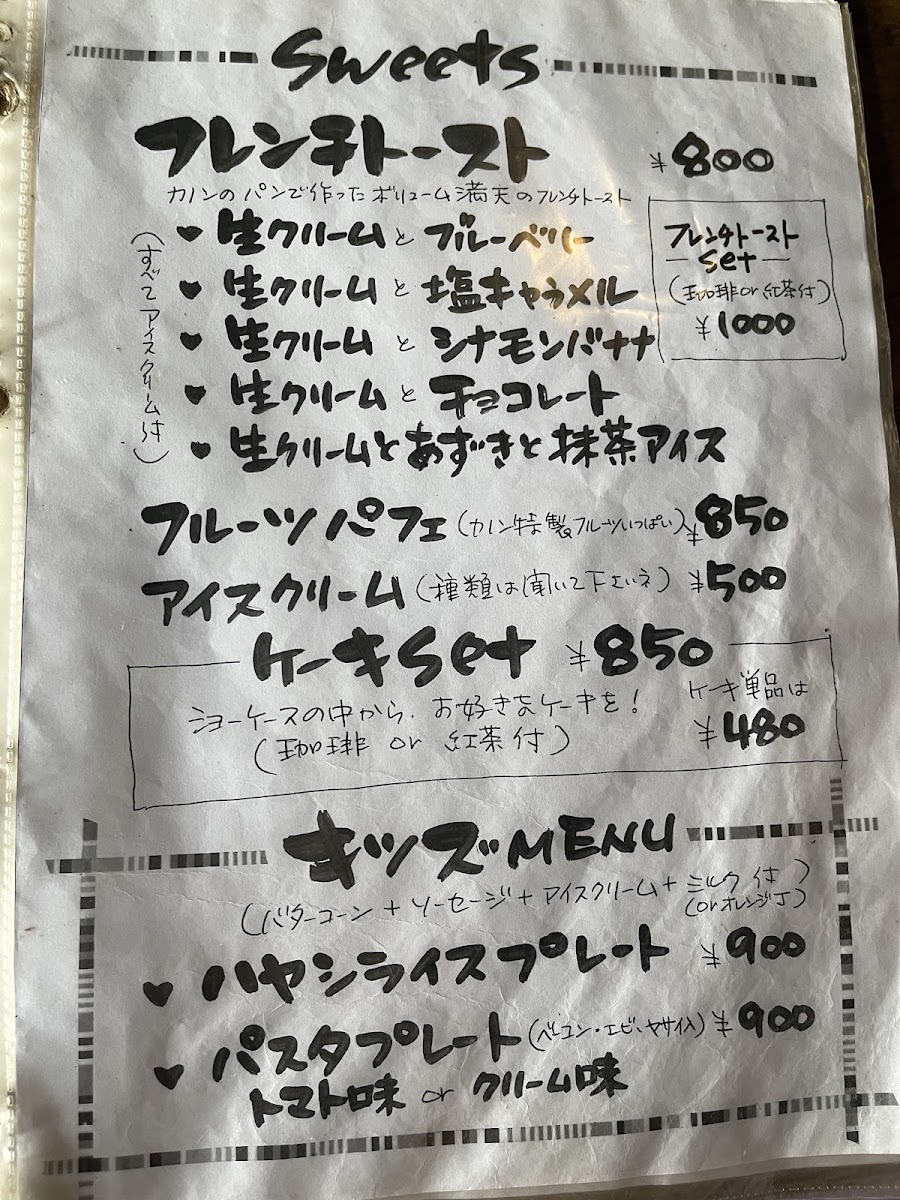 Sweets
フレンチトースト ¥800
カノンのパンで作ったボリューム満天のフレンチトースト
(すべてアイスクリーム付)
♥ 生クリームとブルーベリー
♥ 生クリームと塩キャラメル
♥ 生クリームとシナモンバナナ
♥ 生クリームとチョコレート
♥ 生クリームとあずきと抹茶アイス
フレンチトースト
set
(珈琲or紅茶付)
¥1000
フルーツパフェ(カノン特製フルーツいっぱい) ¥850
アイスクリーム(種類は聞いて下さいネ) ¥500
ケーキset ¥850
ショーケースの中から、お好きなケーキを!
(珈琲 or 紅茶付)
ケーキ単品は
¥480
キッズMENU
(バターコーン+ソーセージ+アイスクリーム+ミルク付)
(orオレンジJ)
♥ ハヤシライスプレート ¥900
♥ パスタプレート(ベーコン・エビ・ヤサイ入) ¥900
トマト味 or クリーム味